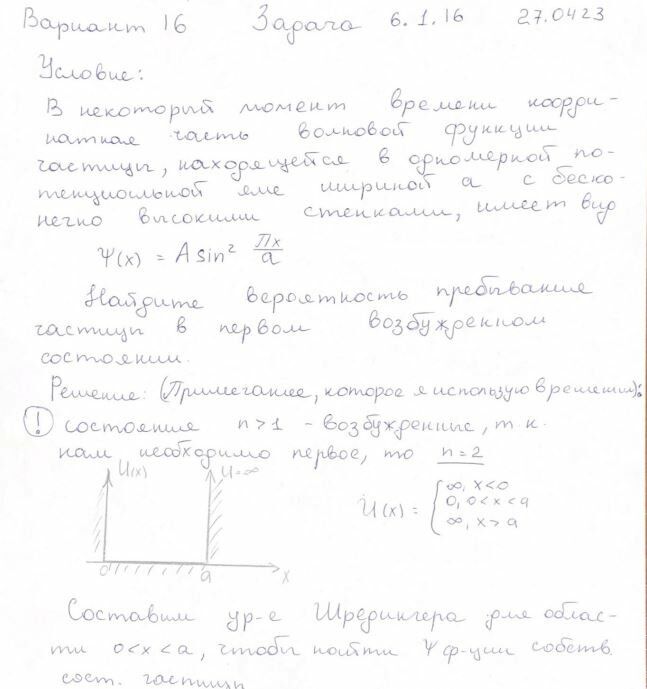 Вариант 16 Задача 6.1.16 27.0423
Условие:
В некоторый момент времени коорди-
натная часть волновой функции
частицы, находящейся в одномерной по-
тенциальной яме шириной a с беско-
нечно высокими стенками, имеет вид
Ψ(x) = A sin² πx/a
Найдите вероятность пребывания
частицы в первом возбужденном
состоянии.
Решение: (Примечание, которое я использую в решении):
! состояние n>1 - возбужденные, т.к.
нам необходимо первое, то n=2
U(x) U=∞
U(x) = { ∞, x<0
0, 0<x<a
∞, x>a
0 a x
Составим ур-е Шредингера для облас-
ти 0<x<a, чтобы найти Ψ ф-ции собств.
сост. частицы